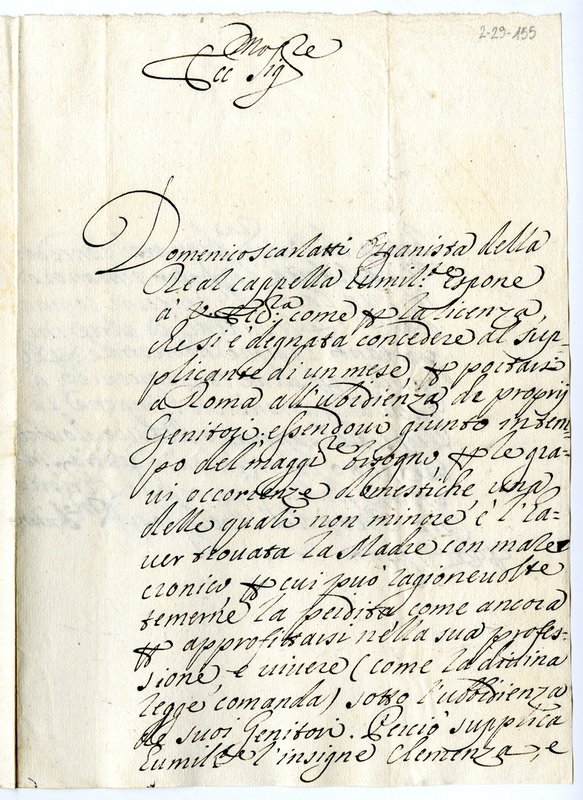 2-29-155
Ecc Sig.re
Domenico Scarlatti Organista della
Real cappella humil.te espone
à V. Ecc.za come p la licenza,
che si è degnata concedere al sup-
plicante di un mese, p portarsi
a Roma all'ubidienza de proprij
Genitori, essendovi giunto in tem-
po del magg.re bisogno, p le gra-
vi occorrenze domestiche, una
delle quali non minore è l'ha-
ver trovata la Madre con male
cronico p cui può ragionevolte
temerne la perdita come ancora
p approfittarsi nella sua profes-
sione, e vivere (come la divina
legge comanda) sotto l'ubidienza
de suoi Genitori. Perciò supplica
humil.te l'insigne clemenza, e